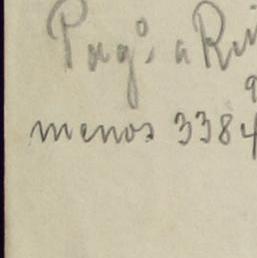 Pag.º a Rui
menos 3384